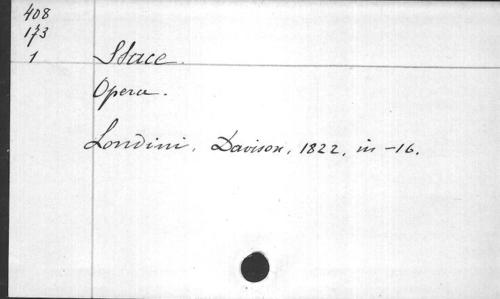 408
173
1 Stace.
Opera.
Londini, Davison, 1822, in-16.